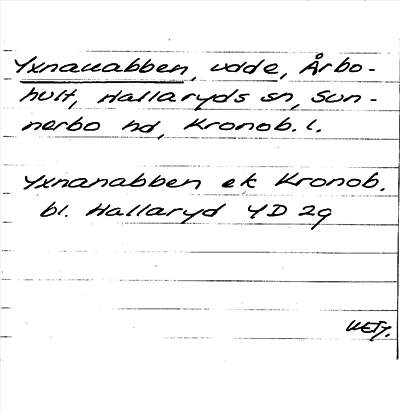 Yxnanabben, udde, Årbo-
hult, Hallaryds sn, Sun-
nerbo hd, Kronob. l.
Yxnanabben ek Kronob.
bl. Hallaryd 4D 2g